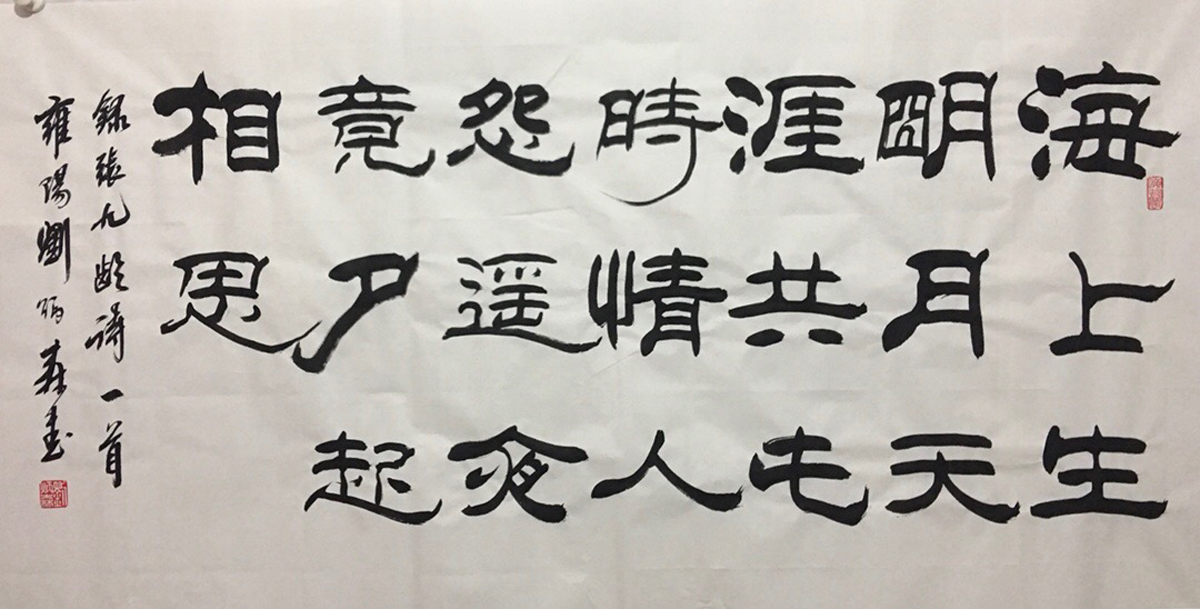 海上生
明月天
涯共此
時情人
怨遥夜
竟夕起
相思
錄張九齡詩一首
雍陽劉炳森書